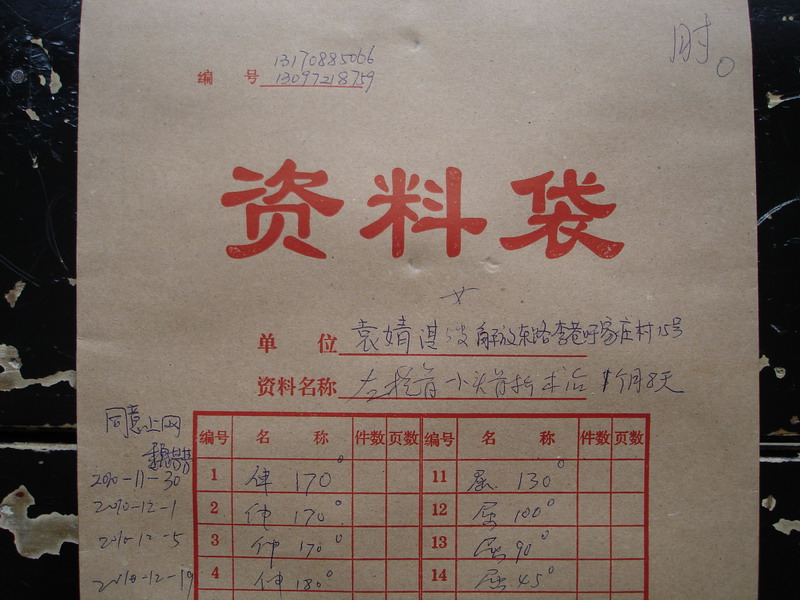 肘。
13170885066
编 号 13097218759
资料袋
女
单 位 袁婧 解放东路李巷 家庄村15号
资料名称 左桡骨小头骨折术后 1个月8天
同意上网
编号 名 称 件数 页数 编号 名 称 件数 页数
2010-11-30 1 伸 170° 11 屈 130°
2010-12-1 2 伸 170° 12 屈 100°
2010-12-5 3 伸 170° 13 屈 90°
2010-12-19 4 伸 180° 14 屈 45°